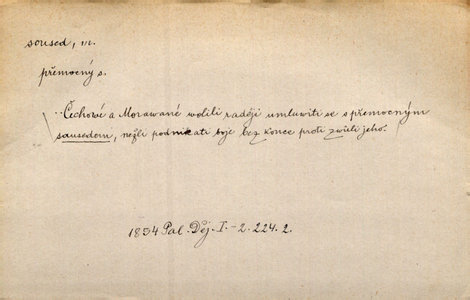 soused, m.
přemocný s.
Čechowé a Morawané wolili raději umluwiti se s přemocným
sausedem, nežli podnikati boje bez konce proti zwůli jeho.
1854 Pal. Děj. I-2. 224. 2.